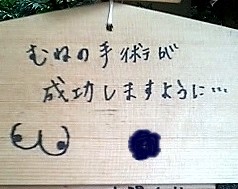 むねの手術が
成功しますように…